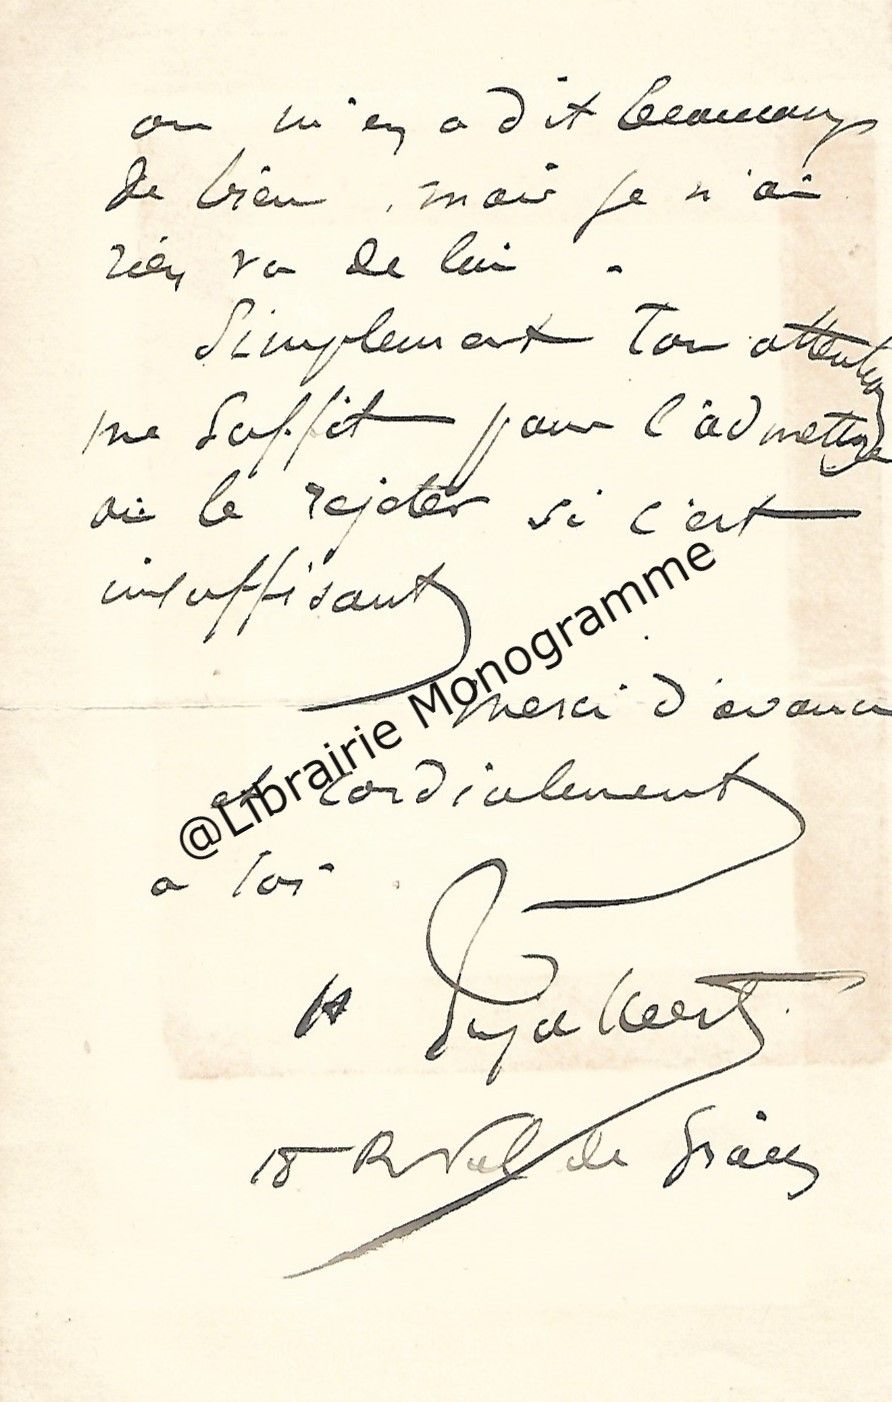 on m'en a dit beaucoup
de bien, mais je n'ai
rien vu de lui -
Simplement Ton attention
me suffit pour l'admettre
ou le rejeter si c'est
insuffisant
merci d'avance
et cordialement
a toi
@Librairie Monogramme
H
18 R Val de Grâce